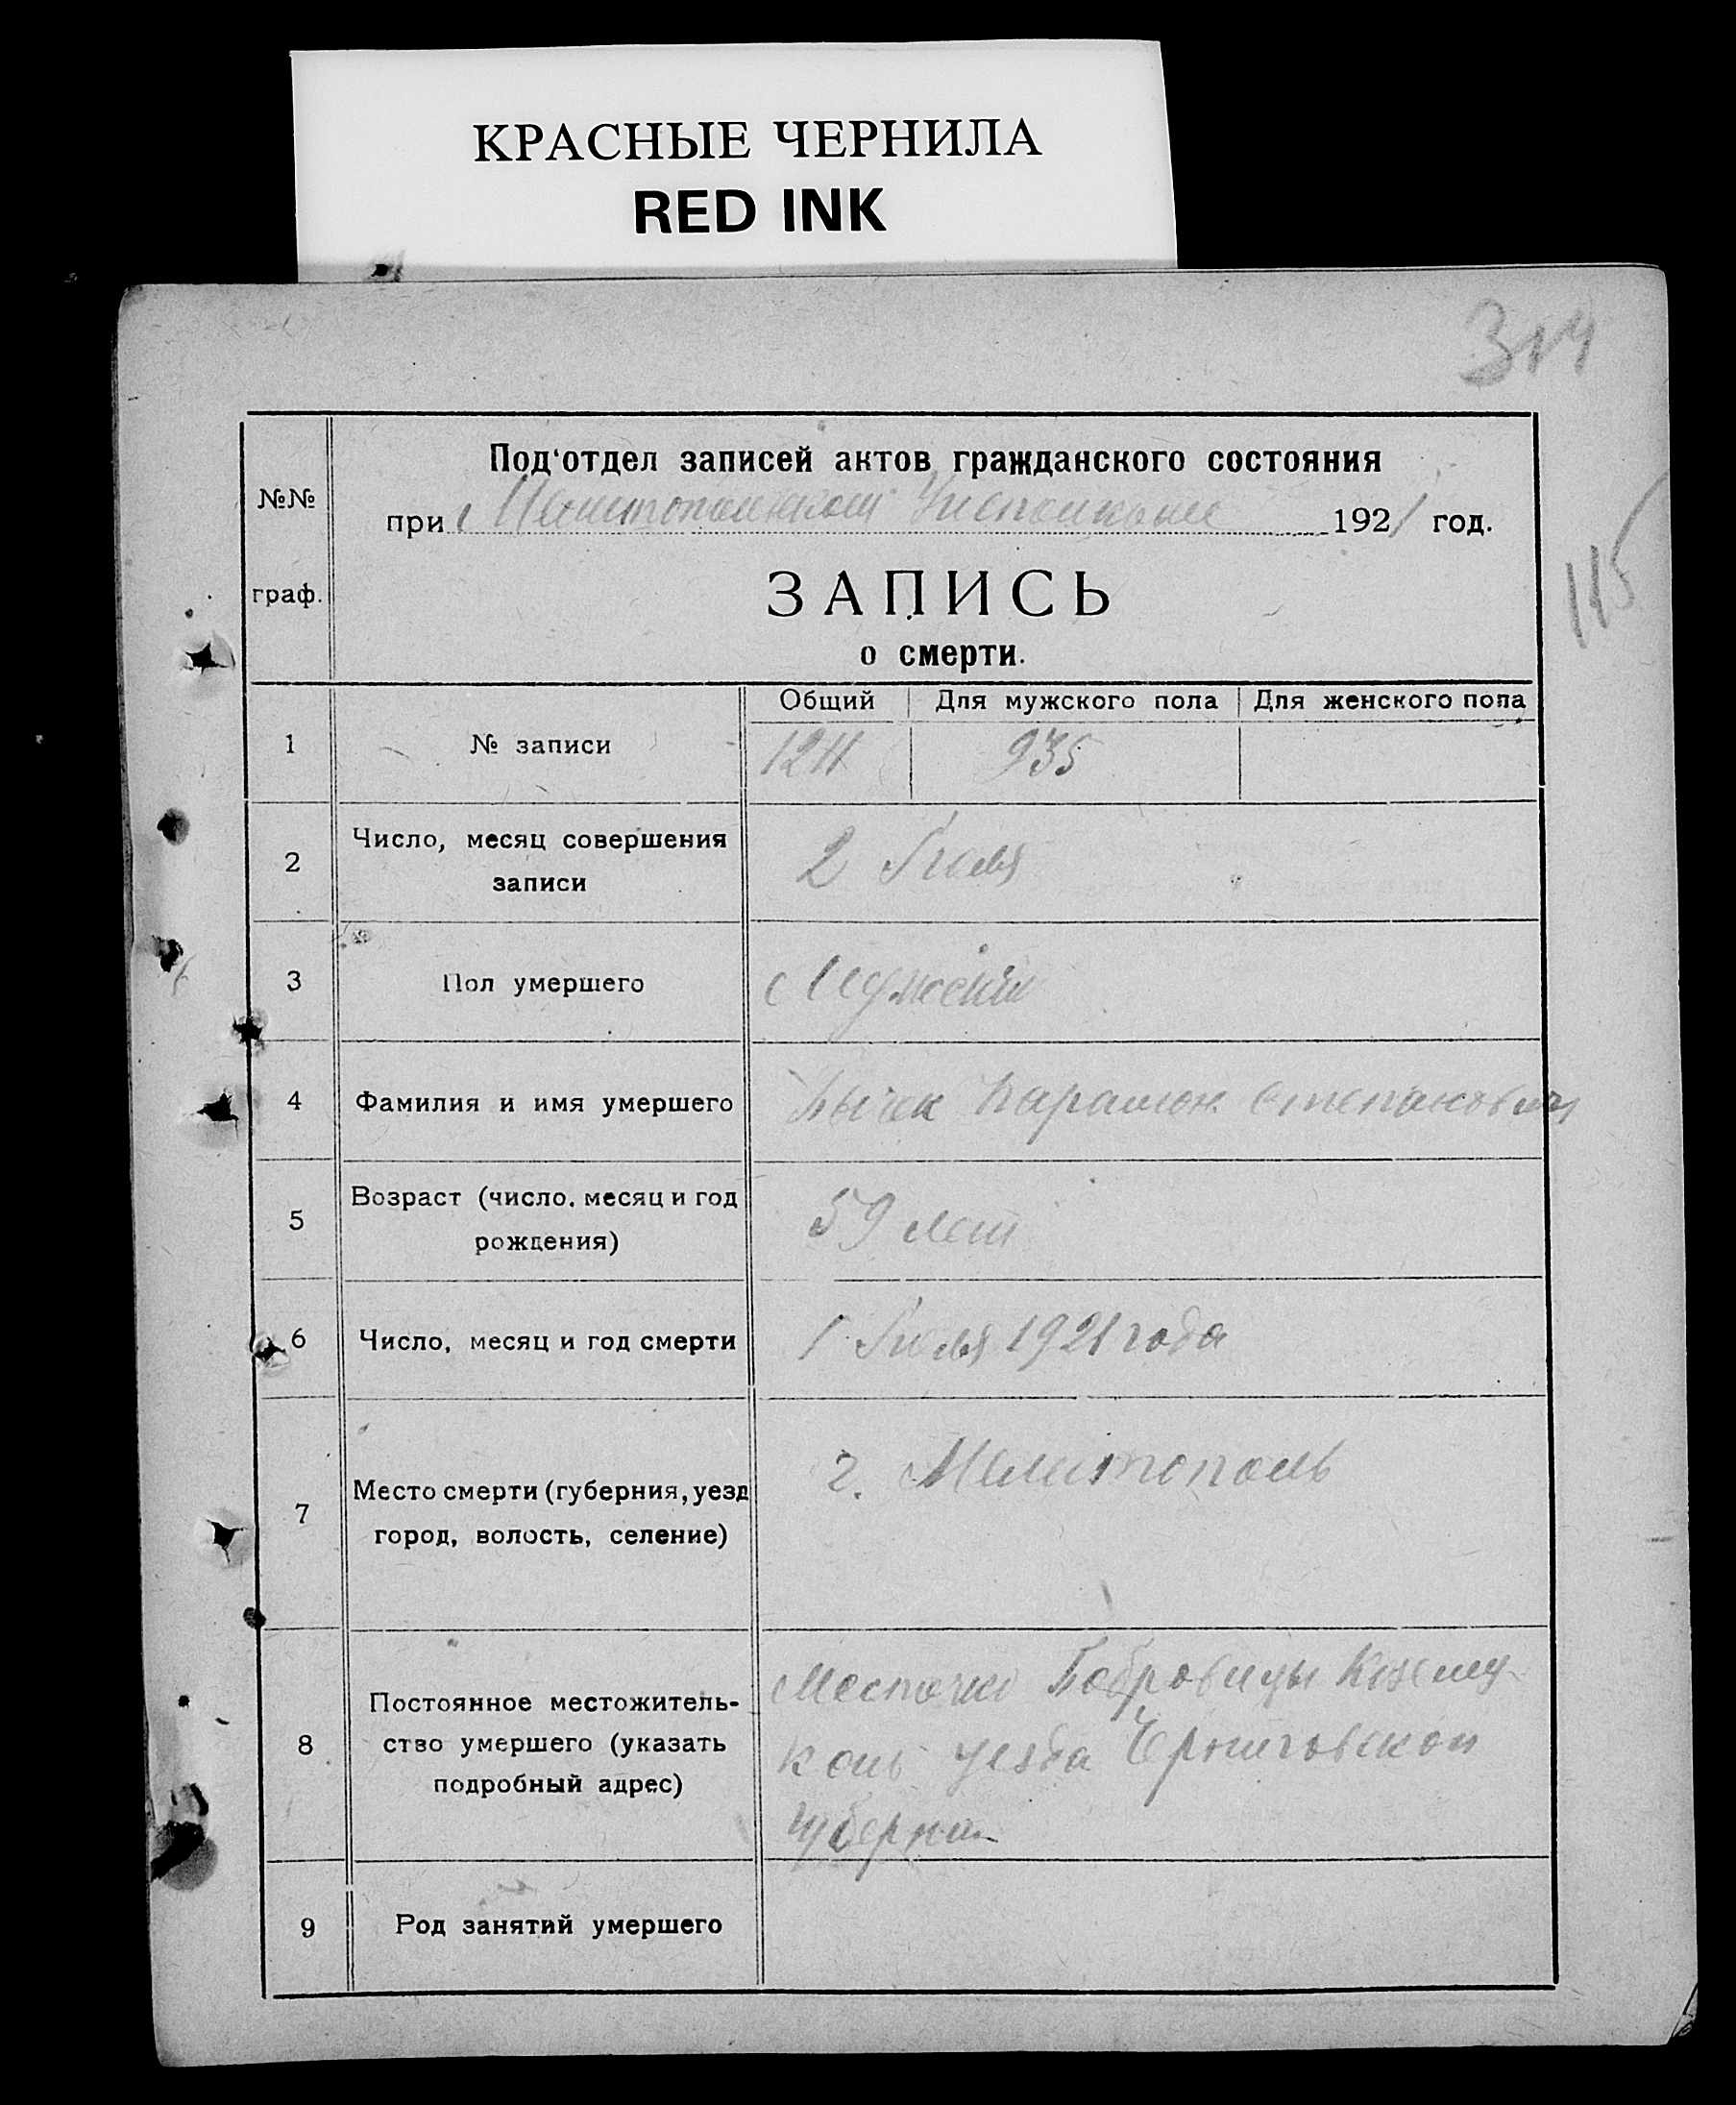 КРАСНЫЕ ЧЕРНИЛА
RED INK
314
Под‘отдел записей актов гражданского состояния
№№
при Мелитопольском Исполкоме 1921 год.
115
ЗАПИСЬ
граф.
о смерти.
Общий Для мужского пола Для женского пола
1 № записи 1211 935
2 Число, месяц совершения
записи
2 Июля
3 Пол умершего Мужской
4 Фамилия и имя умершего Парамон Степанович
5 Возраст (число, месяц и год
рождения)
59 лет
6 Число, месяц и год смерти 1 Июля 1921 года
7 Место смерти (губерния, уезд
город, волость, селение)
г. Мелитополь
8 Постоянное местожитель-
ство умершего (указать
подробный адрес)
Местечко Бобровицы
уезда Черниговской
губернии
9 Род занятий умершего